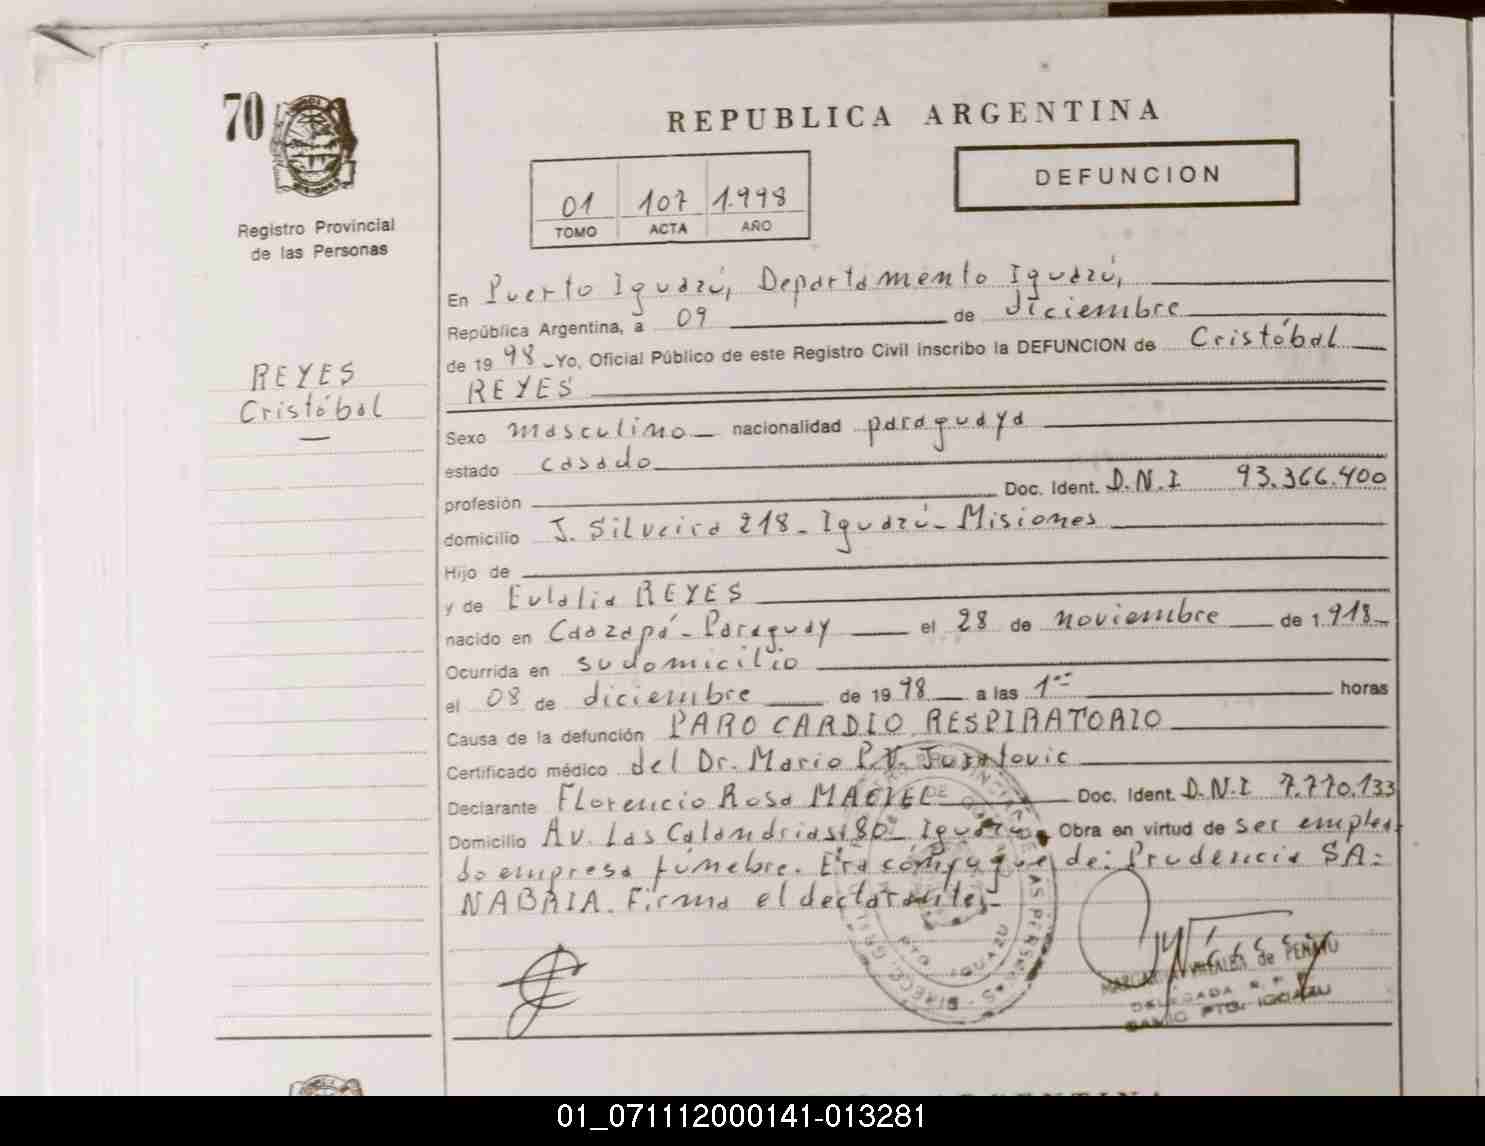 70
REPUBLICA ARGENTINA
DEFUNCION
01 107 1.998
TOMO ACTA AÑO
Registro Provincial
de las Personas
REYES
Cristóbal
En Puerto Iguazú, Departamento Iguazú,
República Argentina, a 09 de diciembre
de 19 98 Yo, Oficial Público de este Registro Civil inscribo la DEFUNCION de Cristóbal
REYES
Sexo masculino nacionalidad paraguaya
estado casado
profesión Doc. Ident. D.N.I 93.366.400
domicilio J. Silveira 218- Iguazú- Misiones
Hijo de
y de Eulalia REYES
nacido en Caazapá- Paraguay el 28 de noviembre de 1.918
Ocurrida en su domicilio
el 08 de diciembre de 19 98 a las 1 horas
Causa de la defunción PARO CARDIO RESPIRATORIO
Certificado médico del Dr. Mario P.V.
Declarante Florencio Rosa MACIEL Doc. Ident. D.N.I 7.770.133
Domicilio Av. Las Calandrias 180- Iguazú. Obra en virtud de ser emplea-
do empresa fúnebre. Era cónyugue de: Prudencia SA-
NABRIA. Firma el declarante.-
PTO. IGUAZU
DELEGADA R. P.
PTO. IGUAZU
01_071112000141-013281